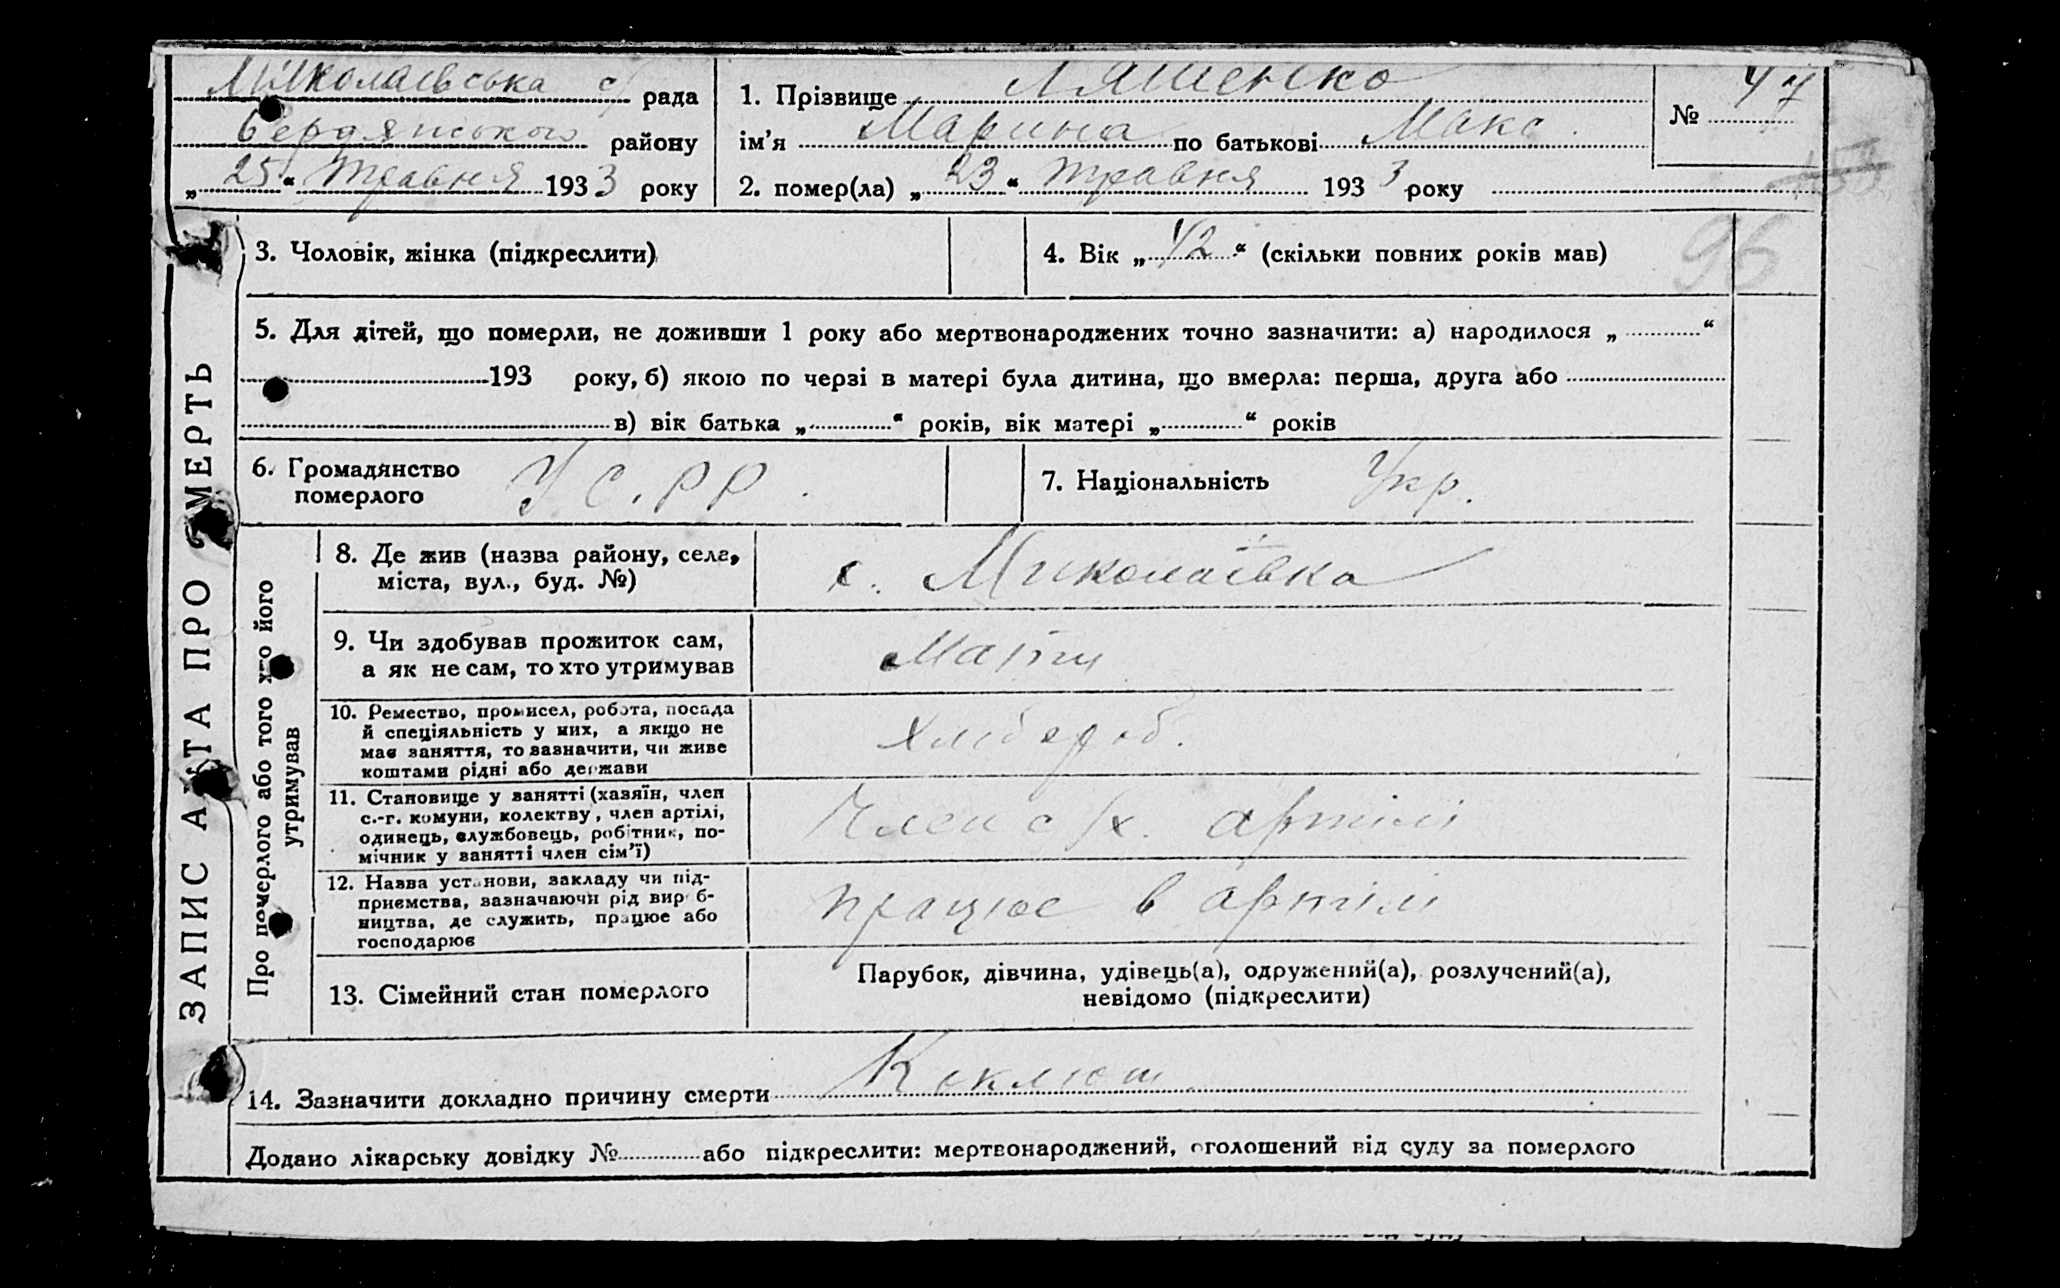 Миколаївська с/ рада
Бердянського району
„ 25 “ Травня 1933 року
1. Прізвище Ляшенко
ім'я Марина по батькові Макс.
2. помер(ла) „ 23 “ травня 1933 року
№ 47
3. Чоловік, жінка (підкреслити)
4. Вік „ “ (скільки повних років мав)
96
5. Для дітей, що померли, не доживши 1 року або мертвонароджених точно зазначити: а) народилося „ “
193 року, б) якою по черзі в матері була дитина, що вмерла: перша, друга або
в) вік батька „ “ років, вік матері „ “ років
6. Громадянство
померлого
УС.РР.
7. Національність Укр.
ЗАПИС АКТА ПРО СМЕРТЬ
Про померлого або того хто його
утримував
8. Де жив (назва району, села,
міста, вул., буд. №)
с. Миколаївка
9. Чи здобував прожиток сам,
а як не сам, то хто утримував
Мати
10. Ремество, промисел, робота, посада
й спеціяльність у них, а якщо не
має заняття, то зазначити, чи живе
коштами рідні або держави
Хлібороб.
11. Становище у занятті (хазяїн, член
с.-г. комуни, колективу, член артілі,
одинець, службовець, робітник, по-
мічник у занятті член сім'ї)
Член с/х. артілі
12. Назва установи, закладу чи під-
приємства, зазначаючи рід вироб-
ництва, де служить, працює або
господарює
працює в артілі
13. Сімейний стан померлого
Парубок, дівчина, удівець(а), одружений(а), розлучений(а),
невідомо (підкреслити)
14. Зазначити докладно причину смерти Коклюш
Додано лікарську довідку № або підкреслити: мертвонароджений, оголошений від суду за померлого